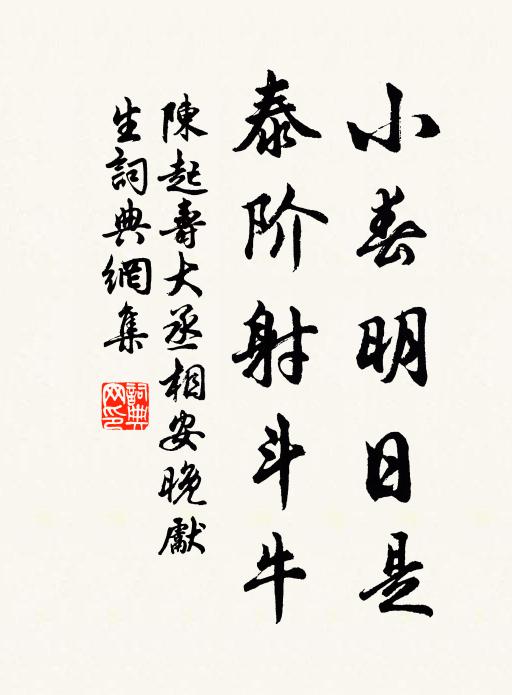 小春明日是
泰阶射斗牛
陳起壽大丞相安晚獻
生詞典網集
詞典
网印